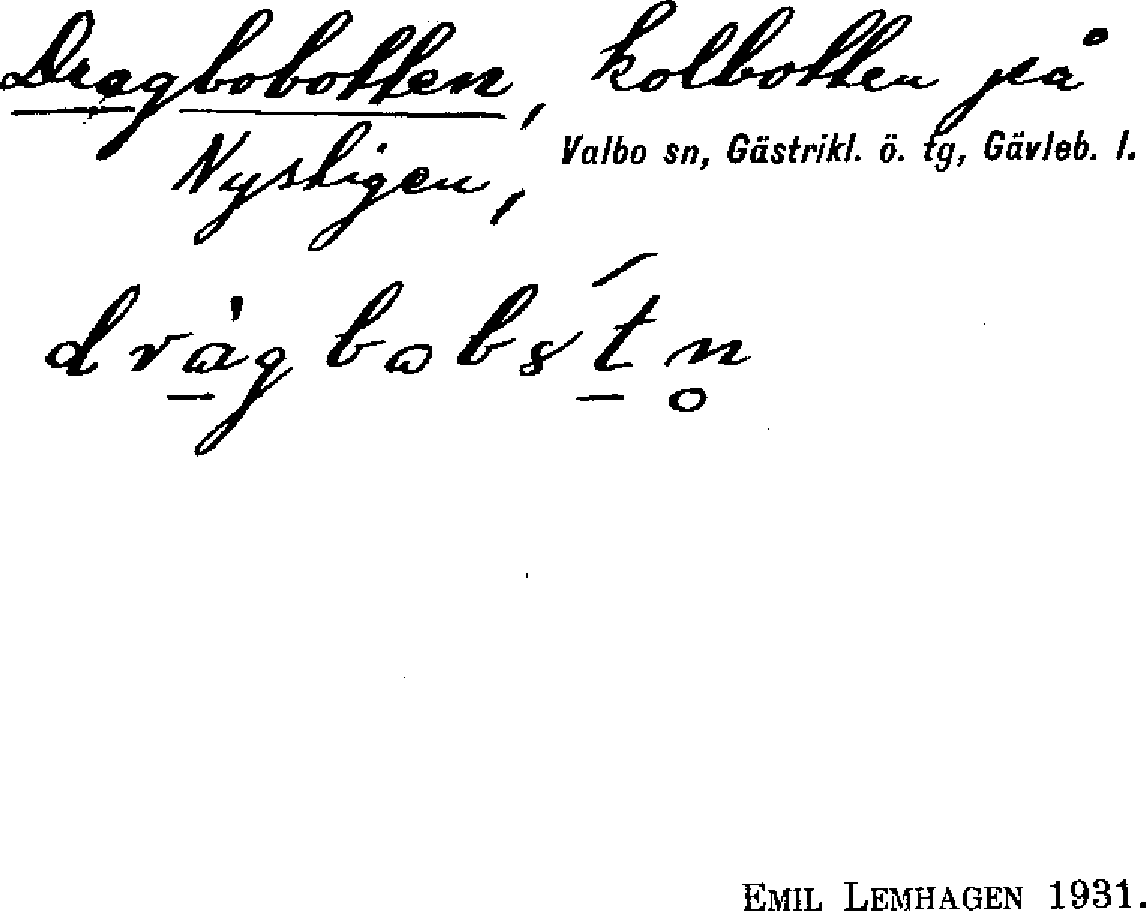 Dragbobotten, kolbotten på
Nystigen, Valbo sn, Gästrikl. ö. tg, Gävleb. l.
EMIL LEMHAGEN 1931.